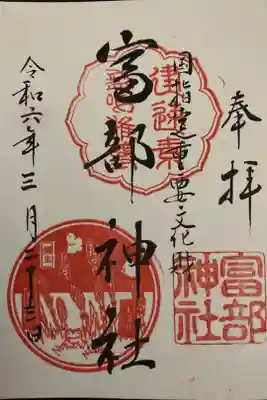 奉拝
国指定重要文化財
富部神社
令和六年三月二十三日
富部
神社